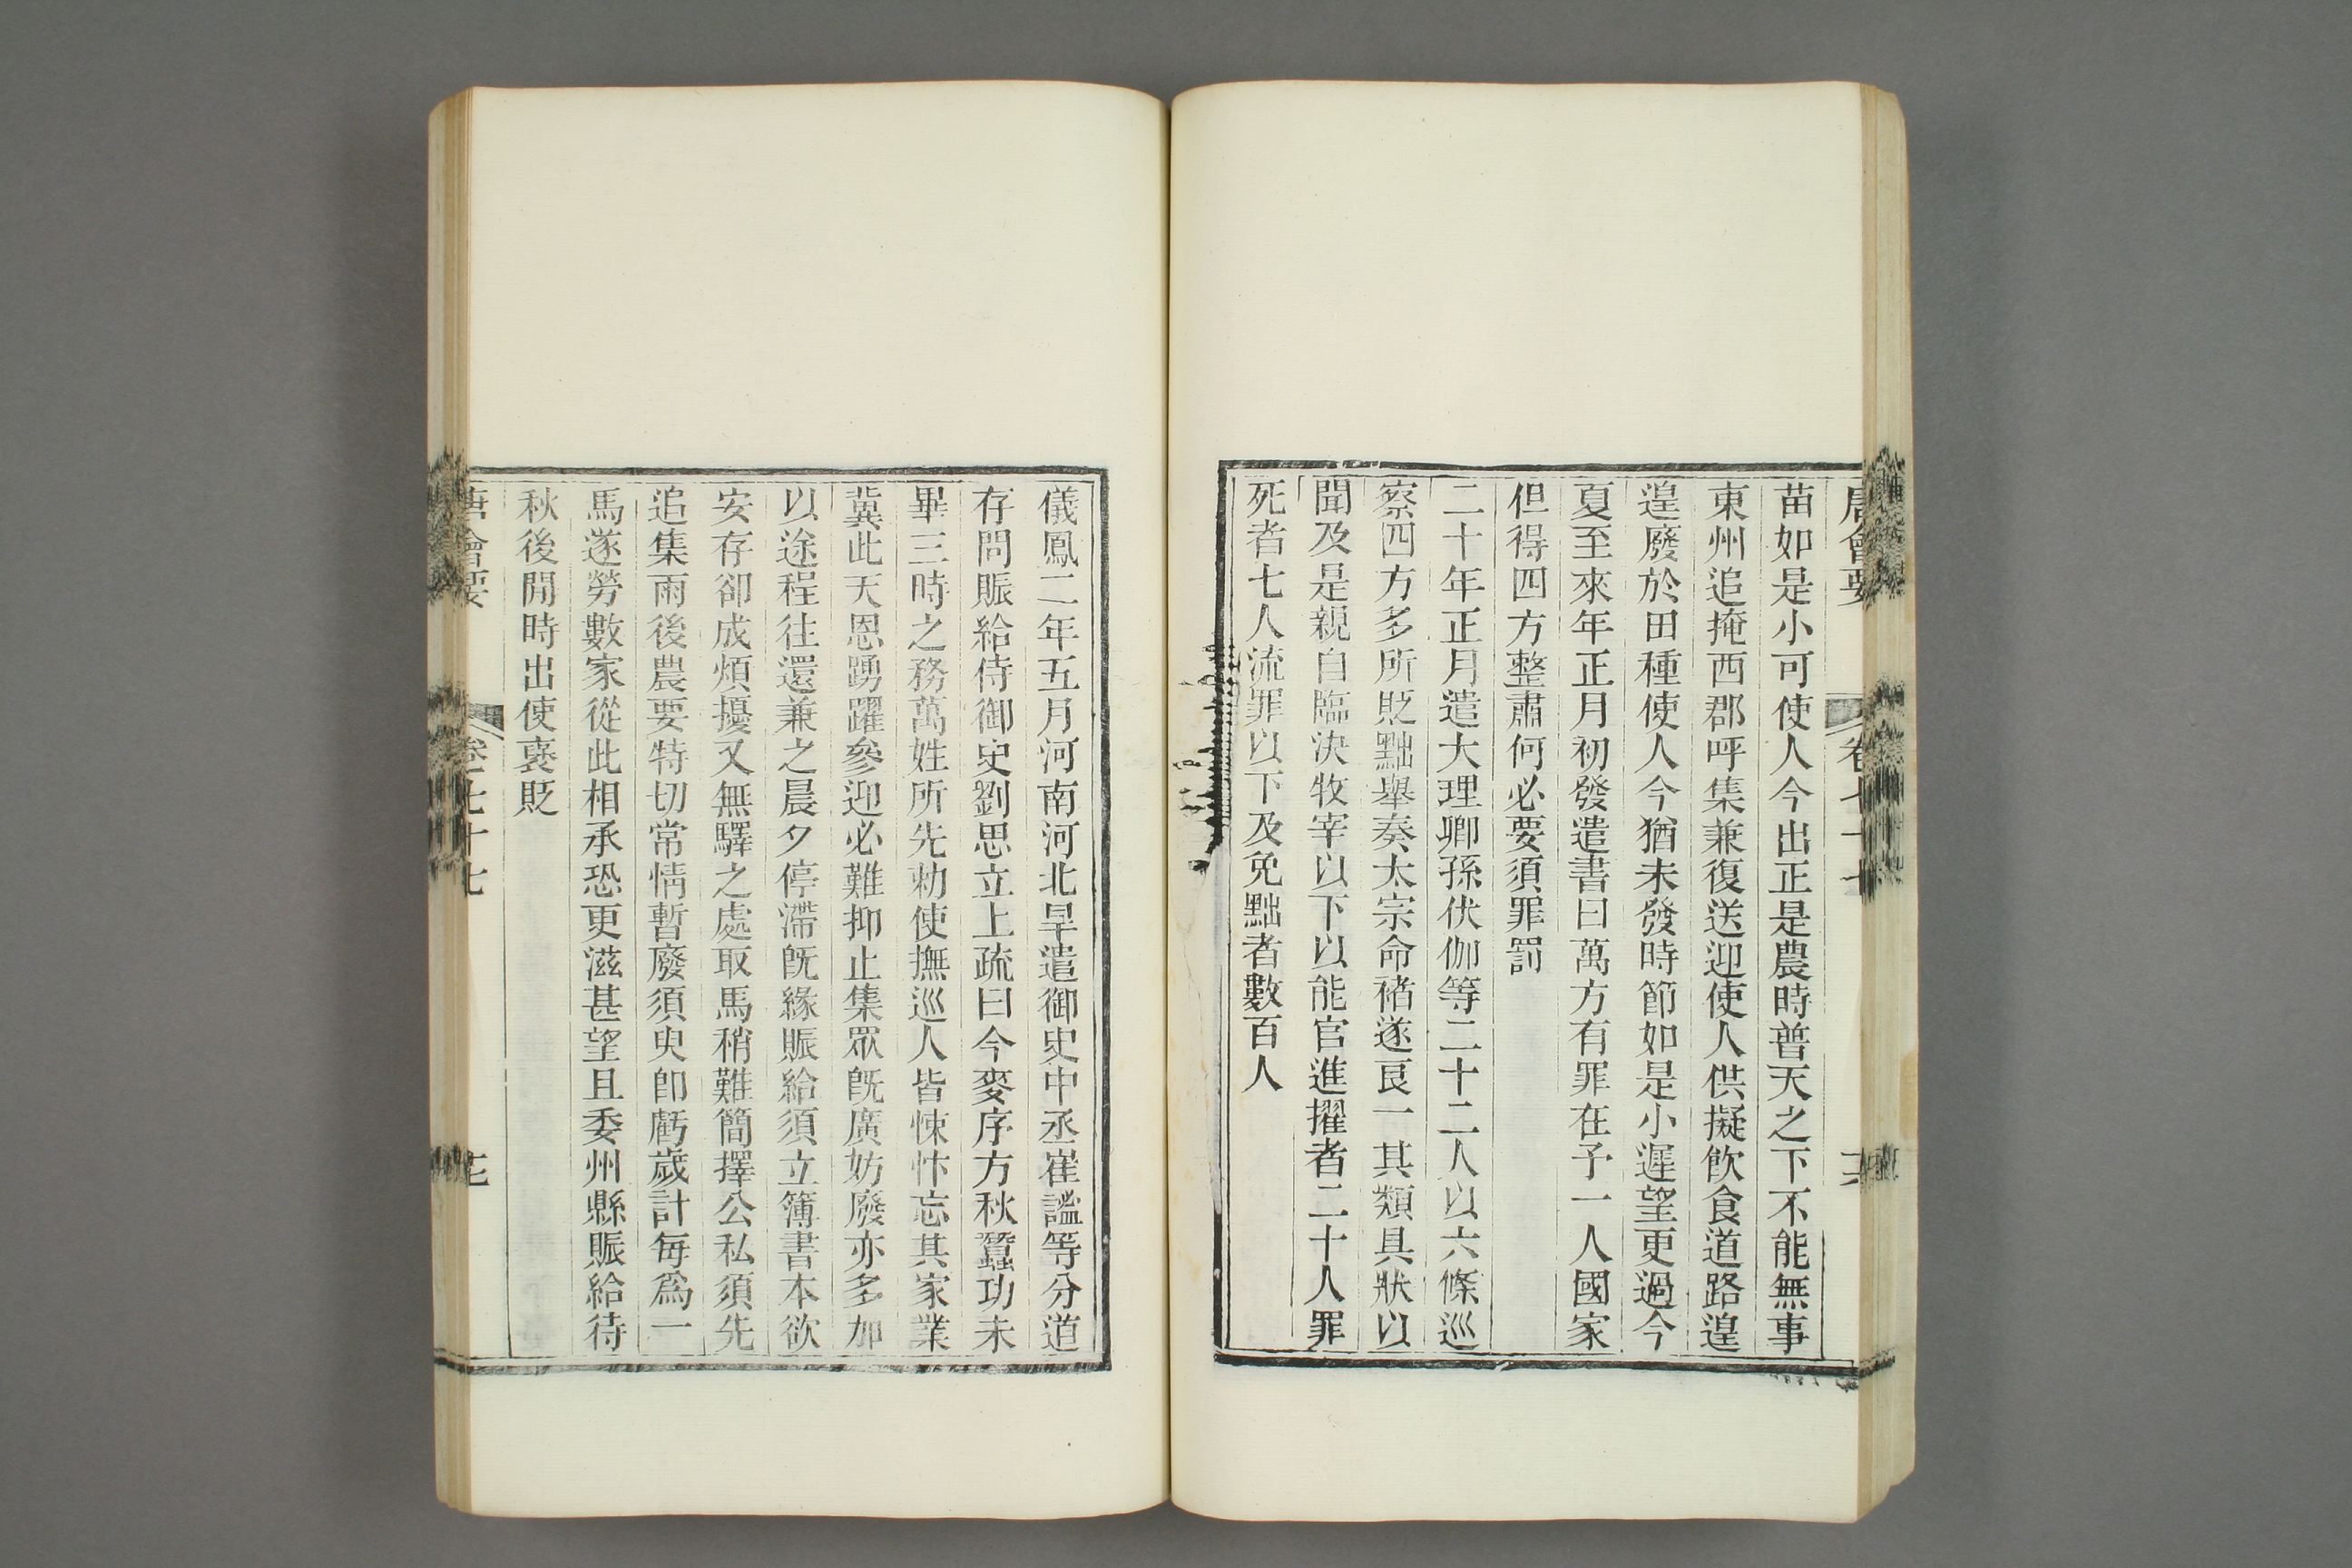 唐會要 卷七十七
苗如是小可使人今出正是農時普天之下不能無事
東州追掩西郡呼集兼復送迎使人供擬飲食道路遑
遑廢於田種使人今猶未發時節如是小遲望更過今
夏至來年正月初發遣書曰萬方有罪在予一人國家
但得四方整肅何必要須罪罰
二十年正月遣大理卿孫伏伽等二十二人以六條巡
察四方多所貶黜舉奏太宗命褚遂良一其類具狀以
聞及是親自臨決牧宰以下以能官進擢者二十人罪
死者七人流罪以下及免黜者數百人
儀鳳二年五月河南河北旱遣御史中丞崔謐等分道
存問賑給侍御史劉思立上疏曰今麥序方秋蠶功未
畢三時之務萬姓所先勅使撫巡人皆悚忭忘其家業
冀此天恩踴躍參迎必難抑止集眾旣廣妨廢亦多加
以途程往還兼之晨夕停滯旣緣賑給須立簿書本欲
安存卻成煩擾又無驛之處取馬稍難簡擇公私須先
追集雨後農要特切常情暫廢須臾卽虧歲計每爲一
馬遂勞數家從此相承恐更滋甚望且委州縣賑給待
秋後閒時出使襃貶
唐會要 卷七十七